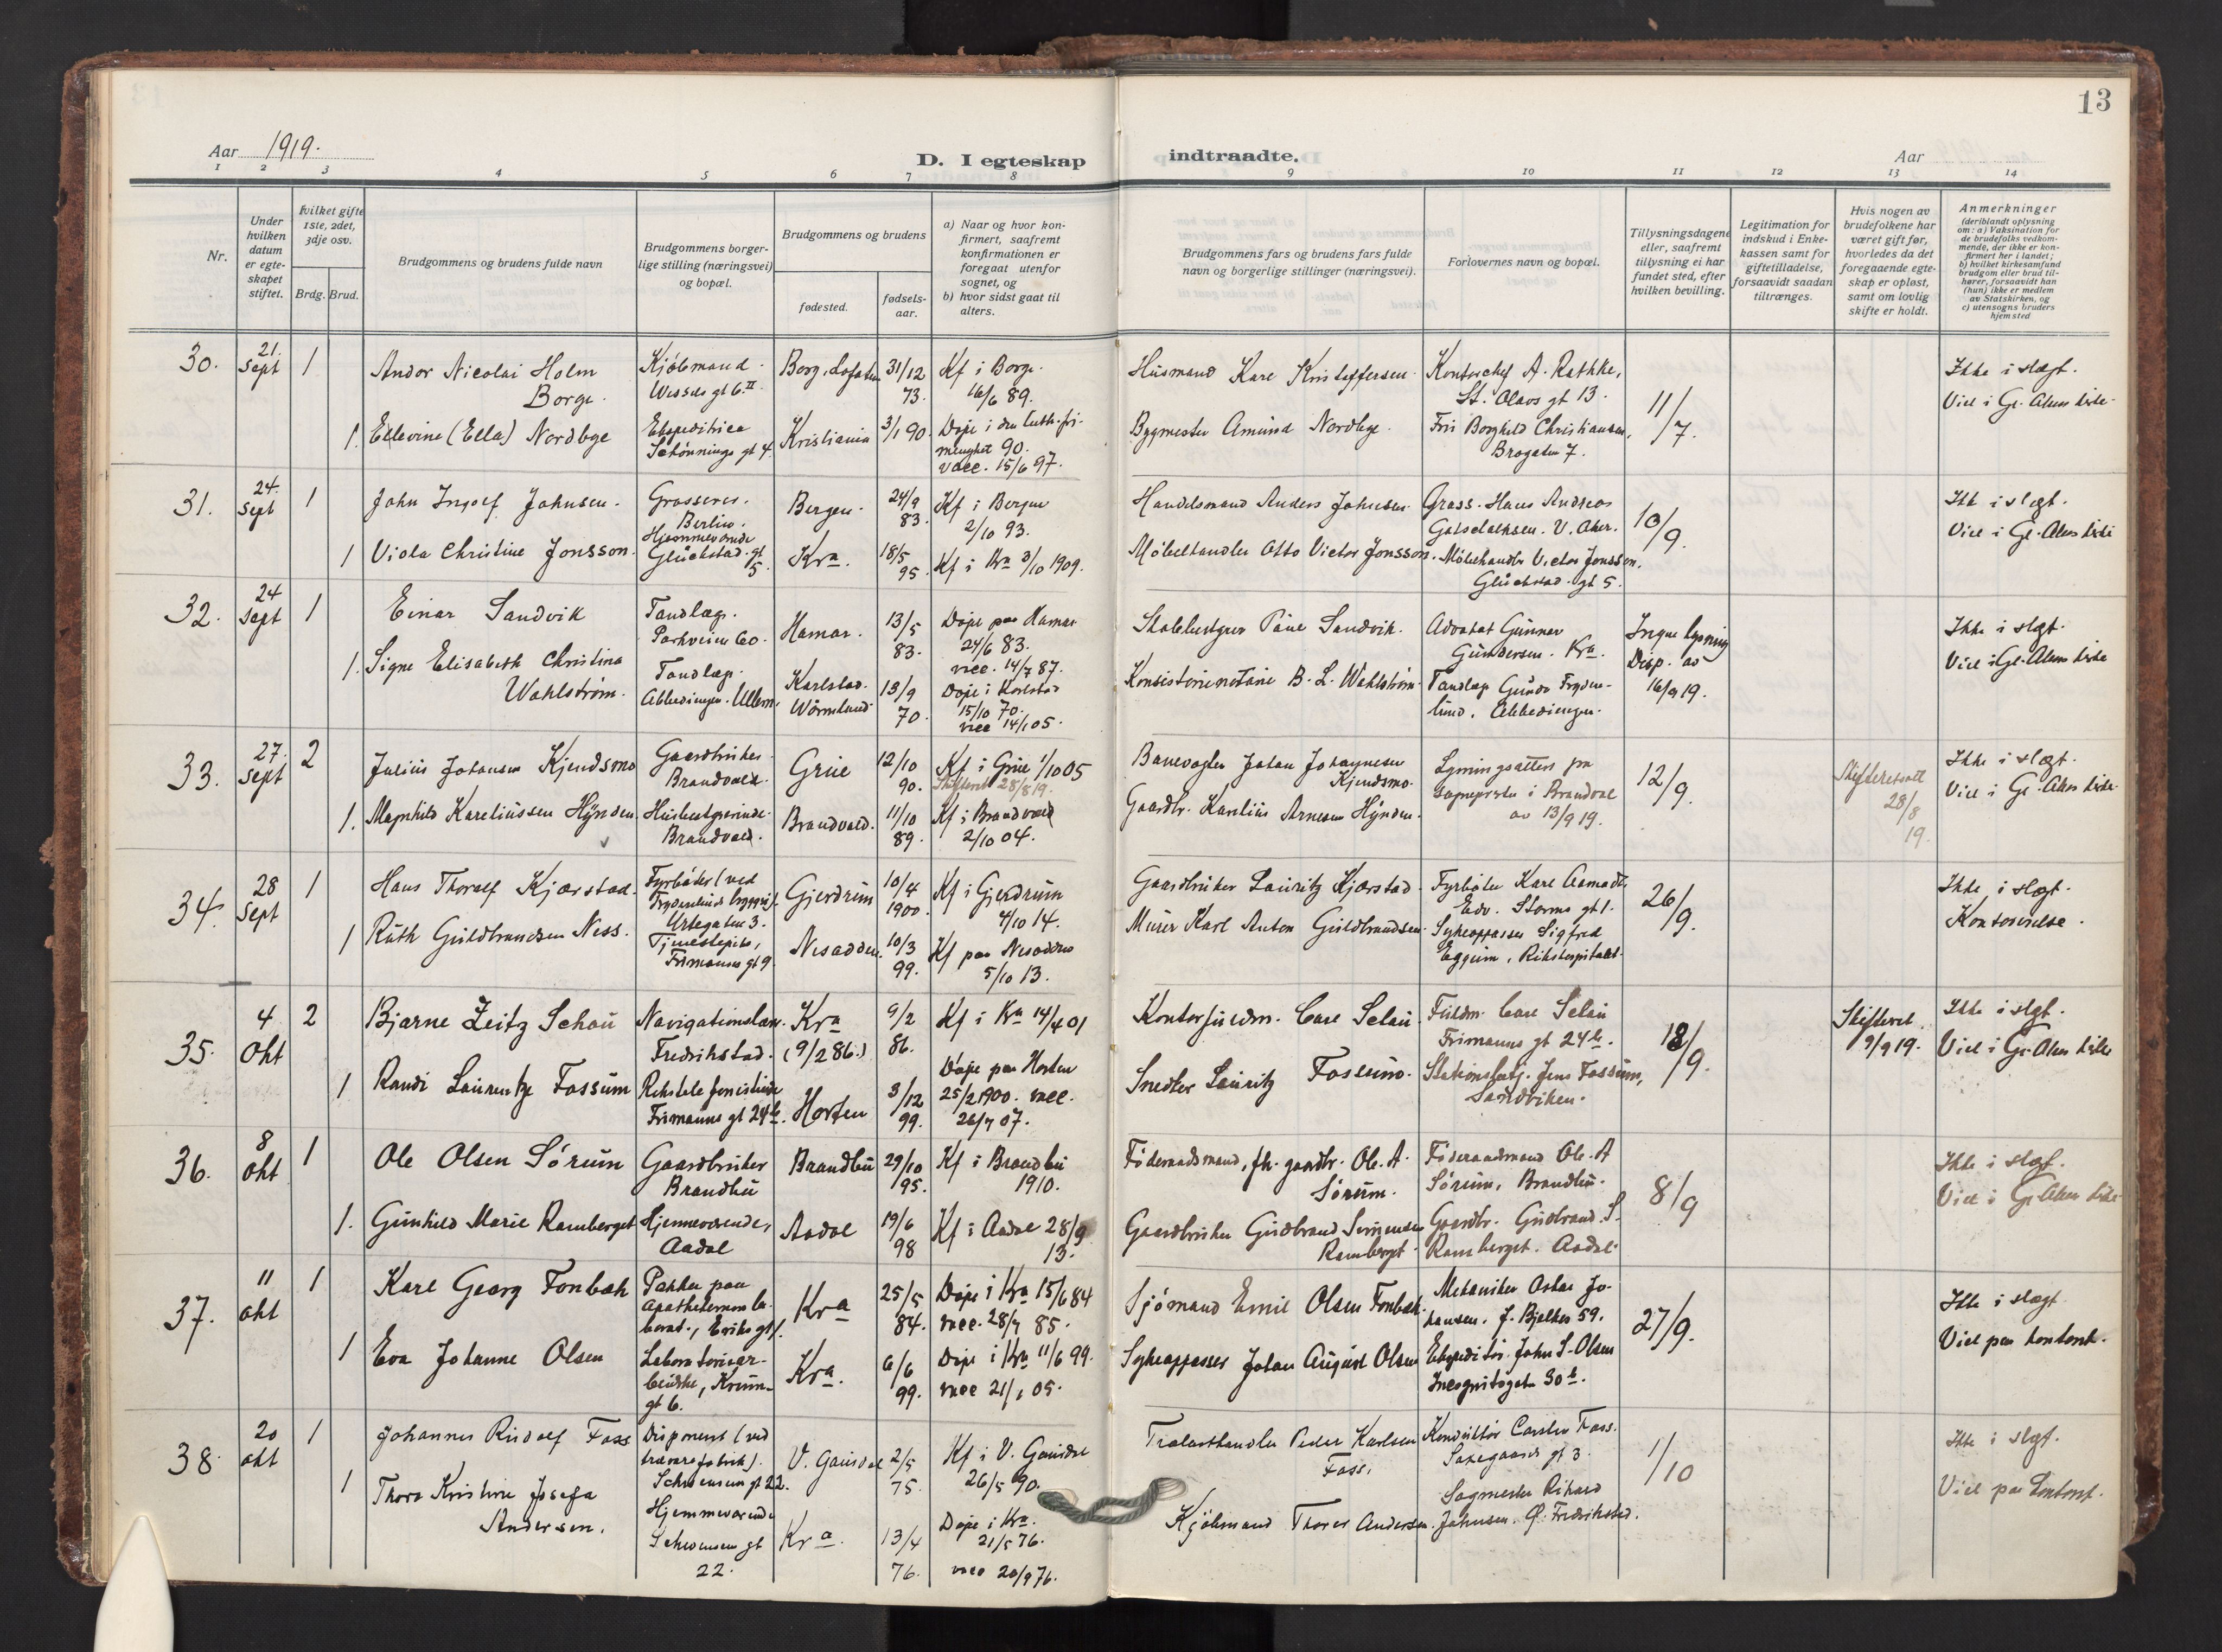 13
Aar 1919.
D. I egteskap
indtraadte.
Aar
1 2 3 4 5 6 7 8 9 10 11 12 13 14
Nr.
Under
hvilken
datum
er egte-
skapet
stiftet.
hvilket gifte
1ste, 2det,
3dje osv.
Brdg. Brud.
Brudgommens og brudens fulde navn
Brudgommens borger-
lige stilling (næringsvei)
og bopæl.
Brudgommens og brudens
fødested.
fødsels-
aar.
a) Naar og hvor kon-
firmert, saafremt
konfirmationen er
foregaat utenfor
sognet, og
b) hvor sidst gaat til
alters.
Brudgommens fars og brudens fars fulde
navn og borgerlige stillinger (næringsvei).
Forlovernes navn og bopæl.
Tillysningsdagene
eller, saafremt
tillysning ei har
fundet sted, efter
hvilken bevilling.
Legitimation for
indskud i Enke-
kassen samt for
giftetilladelse,
forsaavidt saadan
tiltrænges.
Hvis nogen av
brudefolkene har
været gift før,
hvorledes da det
foregaaende egte-
skap er opløst,
samt om lovlig
skifte er holdt.
Anmerkninger
(deriblandt oplysning
om: a) Vaksination for
de brudefolks vedkom-
mende, der ikke er kon-
firmert her i landet;
b) hvilket kirkesamfund
brudgom eller brud til-
hører, forsaavidt han
(hun) ikke er medlem
av Statskirken, og
c) utensogns bruders
hjemsted
30.
21.
Sept
1
Andor Nicolai Holm
Borge.
Kjøbmand.
Wessels gt 6 II
Borg, Lofoten
31/12
73.
Kf i Borge.
16/6 89.
Husmand Karl Kristoffersen.
Kontorchef A. Rathke,
St. Olavs gt 13.
11/7.
Ikke i slægt.
Viet i Gl. Aker kirke.
1.
Ellevine (Ella) Nordbye
Ekspeditrice
Schønnings gt 4.
Kristiania
3/1 90.
Døpt i den luth. fri-
menighet 90.
vacc. 15/6 97.
Bygmester Amund Nordbye.
Frk Borghild Christiansen,
Brogaten 7.
31.
24.
Sept
1
John Ingolf Johnsen.
Grosserer.
Berlin.
Bergen.
24/9
83.
Kf i Bergen
2/10 93.
Handelsmand Anders Johnsen.
Gross. Hans Andreas
V. Aker.
10/9.
Ikke i slegt.
Viet i Gl. Aker kirke
1
Viola Christine Jonsson.
Hjemmeværende
Glückstad. gt
5.
Kra.
18/5
95.
Kf i Kra 3/10 1909.
Møbelhandler Otto Victor Jonsson.
Møbelhandler Victor Jonsson.
Glückstad. gt 5.
32.
24
Sept
1
Einar Sandvik
Tandlæge.
Parkveien 60.
Hamar.
13/5
83.
Døpt paa Hamar
24/6 83.
vacc. 14/7 87.
Skolebestyrer Paul Sandvik.
Advokat Gunnar
Gundersen. Kra.
Ingen lysning
Disp. av
16/9 19.
Ikke i slegt.
Viet i Gl. Aker kirke
1.
Signe Elisabeth Christina
Wahlstrøm.
Tandlæge.
Abbedingen. Ullern.
Karlstad.
Wärmland
13/9
70.
Døpt i Karlstad
15/10 70.
vacc 14/1 05.
Konsistorienotarie B. L. Wahlstrøm.
Tandlæge Gunda Fryden-
lund. Abbedingen.
33.
27.
Sept
2
Julius Johansen Kjendsmo
Gaardbruker.
Brandvald.
Grue
12/10
90.
Kf i Grue 1/10 05
Skifteret 28/8 19.
Banevogter Johan Johannesen
Kjendsmo.
Lysningsattest fra
sogneprsten i Brandval
av 13/9 19.
12/9.
Skifteretsatt
28/8
19.
Ikke i slægt.
Viet i Gl. Aker kirke.
1.
Magnhild Kareliussen Hynden.
Husbestyrerinde.
Brandvald.
Brandvald.
11/10
89.
Kf i Brandvold
2/10 04.
Gaardbr. Karelius Arnesen Hynden.
34.
28
Sept
1
Hans Thoralf Kjærstad.
Fyrbøter (ved
Frydenlunds bryggeri).
Urtegaten 3.
Gjerdrum
10/4
1900.
Kf i Gjerdrum
4/10 14.
Gaardbruker Lauritz Kjærstad.
Fyrbøter Karl Aamodt,
Edv. Storms gt 1.
26/9.
Ikke i slegt.
Kontorvielse.
1
Ruth Guldbrandsen Ness.
Tjenestepike,
Frimanns gt 9.
Nesodden.
10/3
99.
Kf paa Nesodden
5/10 13.
Murer Karl Anton Guldbrandsen.
Sykepasser Sigfred
Eggum, Rikshospitalet.
35.
4
Okt
2
Bjarne Zeitz Schau
Navigationslær.
Fredrikstad.
Kra
(9/2 86.)
9/2
86.
Kf i Kra 14/4 01
Kontorfuldm. Carl Schau.
Fuldm. Carl Schau
Frimanns gt 24b.
18/9.
Skifteret
9/9 19.
Ikke i slegt.
Viet i Gl. Aker kirke
1
Randi Laurentze Fossum
Rikstelefonistinde
Frimanns gt 24b.
Horten
3/12
99.
Døpt paa Horten
25/2 1900. vacc.
26/7 07.
Snedker Lauritz Fossum.
Stationsbetj. Jens Fossum,
Sandviken.
36.
8
Okt
1
Ole Olsen Sørum
Gaardbruker
Brandbu
Brandbu
29/10
95.
Kf i Brandbu
1910.
Føderaadsmand, fh. gaardbr. Ole A.
Sørum.
Føderaadmand Ole A
Sørum, Brandbu.
8/9
Ikke i slegt.
Viet i Gl. Aker kirke
1.
Gunhild Marie Ramberget
Hjemmeværende,
Aadal
Aadal
19/6
98
Kf i Aadal 28/9
13.
Gaardbruker Gudbrand Syversen
Ramberget.
Gaardbr. Gudbrand S.
Ramberget. Aadal.
37.
11
okt
1
Karl Georg Fonbæk
Pakker paa
Apothekernes la-
borat., Eriks gt 1.
Kra
25/5
84.
Døpt i Kra 15/6 84
vacc. 28/7 85.
Sjømand Emil Olsen Fonbæk.
Mekaniker Oskar Jo-
hansen. J. Bjelkes 59.
27/9.
Ikke i slægt
Viet paa kontoret.
1
Eva Johanne Olsen
Laboratoriear-
beiderske,
gt 6.
Kra.
6/6
99.
Døpt i Kra 11/6 99.
vacc 21/1 05.
Sykepasser Johan August Olsen
Ekspeditør John S. Olsen
Incognitogaten 30b.
38.
20
okt
1
Johannes Rudolf Foss
Disponent (ved
trævarefabrik).
Schwensens gt 22.
V. Gausdal
2/5
75.
Kf i V. Gausdal
26/5 90.
Trælasthandler Peder Karlsen
Foss.
Konduktør Carsten Foss.
Saxegaards gt 3.
1/10
Ikke i slegt.
Viet paa kontoret.
1
Thora Kristine Josefa
Andersen.
Hjemmeværende
Schwensens gt
22.
Kra.
13/4
76.
Døpt i Kra.
21/5 76.
vacc 20/9 76.
Kjøbmand Thorer Andersen.
Sagmester Rikard
Johnsen. Ø. Fredrikstad.